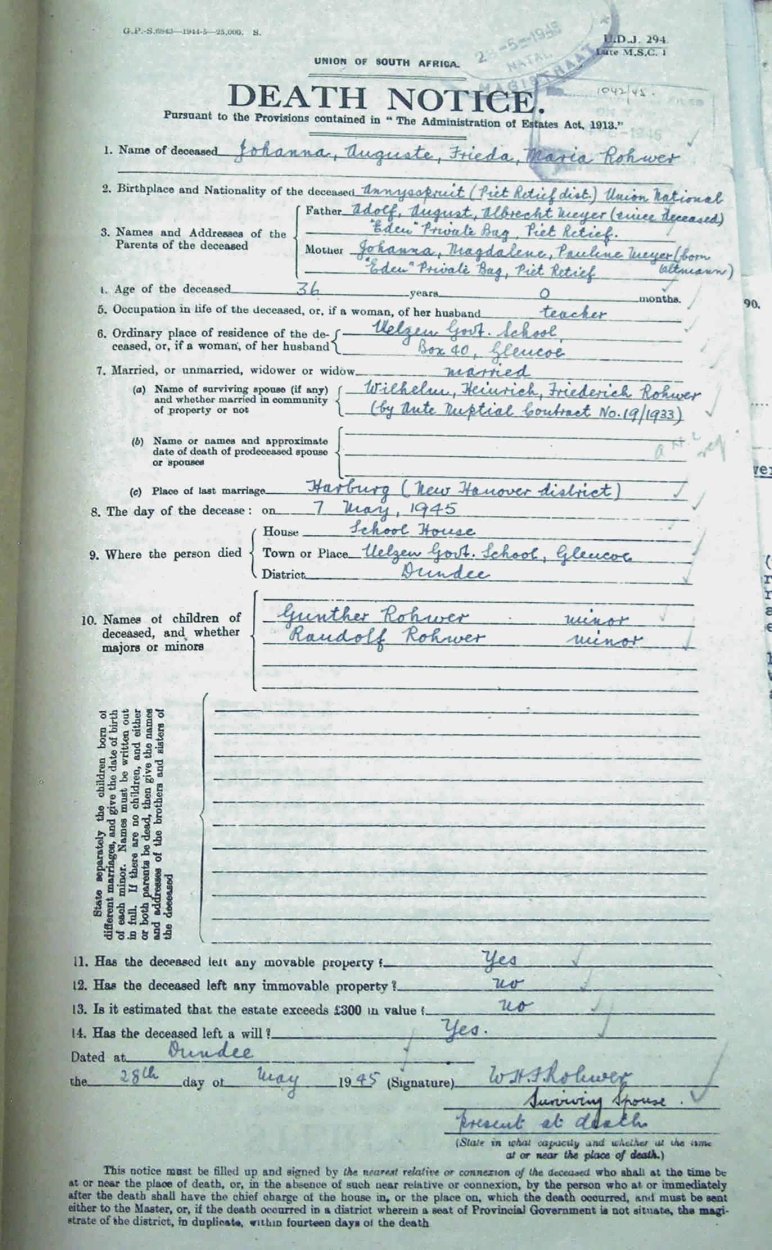 G.P.-S.6943—1944-5—25,000. S.
U.D.J. 294
Late M.S.C. 1
2 -5-1945
NATAL
1042/45.
UNION OF SOUTH AFRICA.
DEATH NOTICE.
Pursuant to the Provisions contained in "The Administration of Estates Act, 1913."
1. Name of deceased Johanna, Auguste, Frieda, Maria Rohwer
2. Birthplace and Nationality of the deceased Annysspruit (Piet Retief dist.) Union National
3. Names and Addresses of the Parents of the deceased
Father Adolf, August, Albrecht Meyer (since deceased)
"Eden" Private Bag, Piet Retief.
Mother Johanna, Magdalene, Pauline Meyer (born
"Eden" Private Bag, Piet Retief Altmann)
4. Age of the deceased 36 years 0 months.
5. Occupation in life of the deceased, or, if a woman, of her husband teacher
6. Ordinary place of residence of the de- Uelzen Govt. School,
ceased, or, if a woman, of her husband Box 40, Glencoe
7. Married, or unmarried, widower or widow married
(a) Name of surviving spouse (if any) Wilhelm, Heinrich, Friederich Rohwer
and whether married in community
of property or not (by Ante Nuptial Contract No. 19/1933)
(b) Name or names and approximate
date of death of predeceased spouse
or spouses
(c) Place of last marriage Harburg (New Hanover district)
8. The day of the decease: on 7 May, 1945
9. Where the person died
House School House
Town or Place Uelzen Govt. School, Glencoe
District Dundee
10. Names of children of Gunther Rohwer minor
deceased, and whether Randolf Rohwer minor
majors or minors
State separately the children born of
different marriages, and give the date of birth
of each minor. Names must be written out
in full. If there are no children, and either
or both parents be dead, then give the names
and addresses of the brothers and sisters of
the deceased
11. Has the deceased left any movable property? Yes
12. Has the deceased left any immovable property? no
13. Is it estimated that the estate exceeds £300 in value? no
14. Has the deceased left a will? Yes.
Dated at Dundee
the 28th day of May 1945 (Signature) W H F Rohwer
Surviving Spouse.
present at death
(State in what capacity and whether at the time
at or near the place of death.)
This notice must be filled up and signed by the nearest relative or connexion of the deceased who shall at the time be
at or near the place of death, or, in the absence of such near relative or connexion, by the person who at or immediately
after the death shall have the chief charge of the house in, or the place on, which the death occurred, and must be sent
either to the Master, or, if the death occurred in a district wherein a seat of Provincial Government is not situate, the magi-
strate of the district, in duplicate, within fourteen days of the death
90.